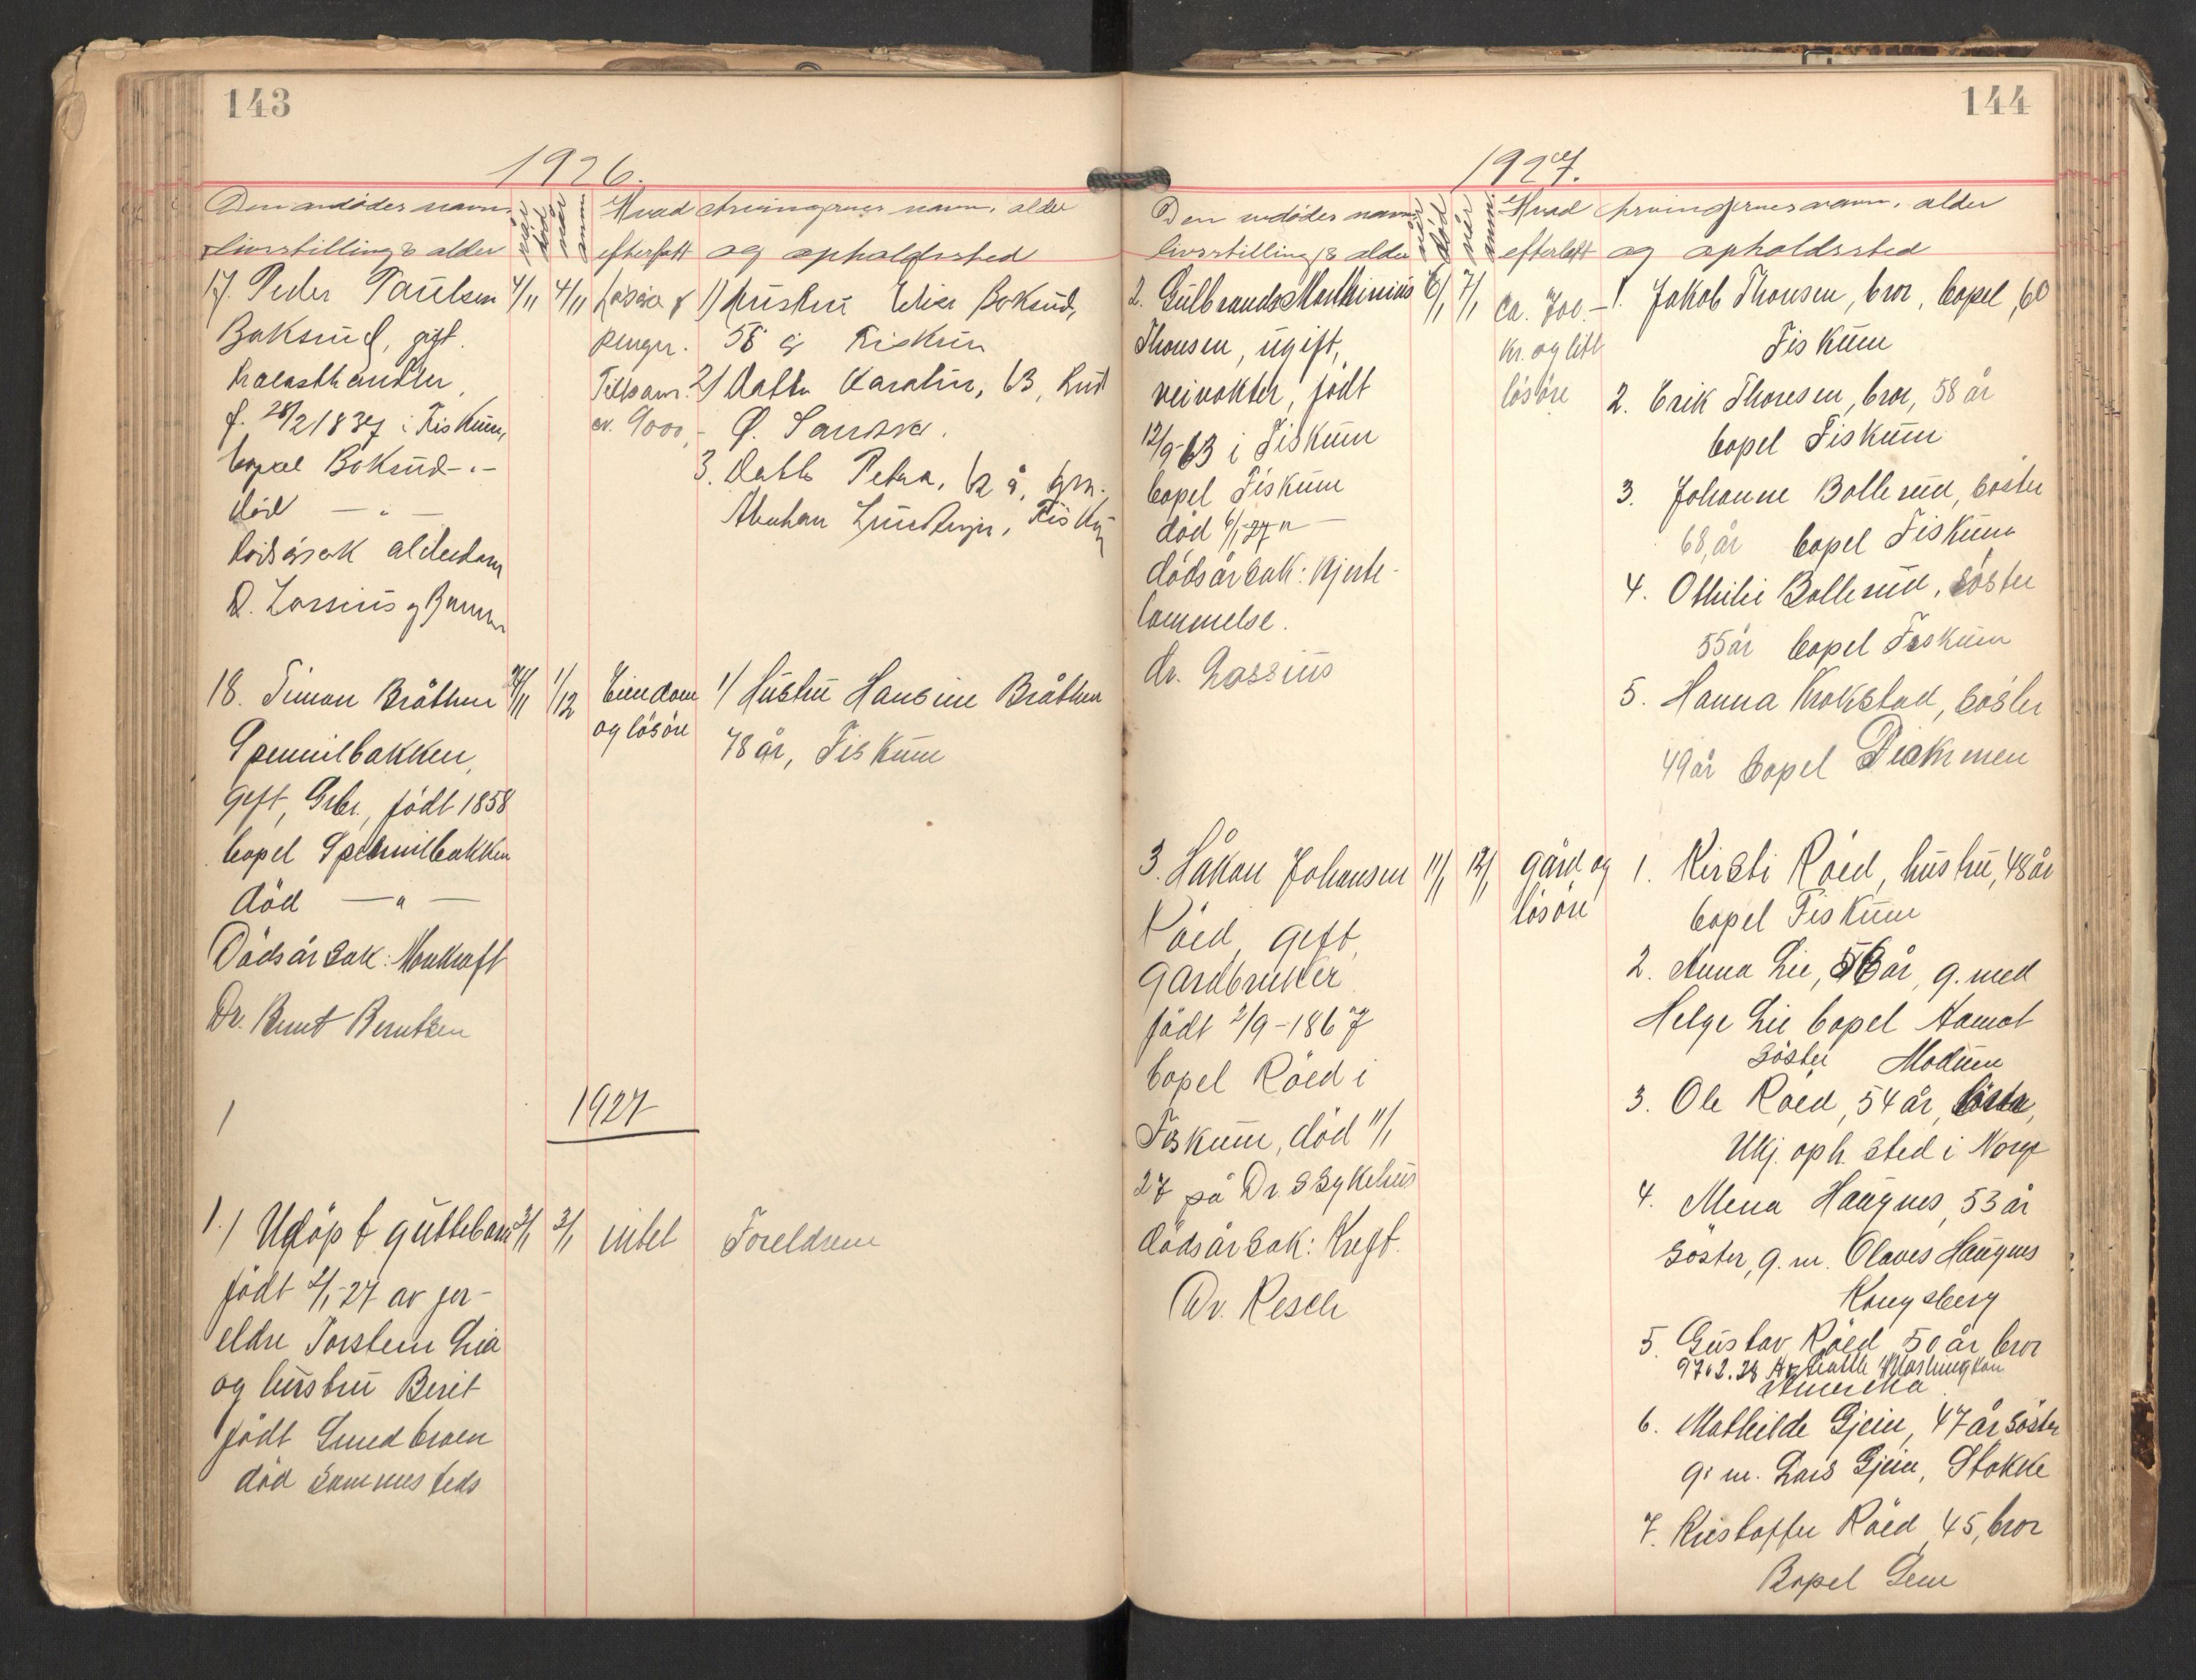 143
1926.
Den avdödes navn, når död når anm. Hvad Arvingernes navn, alder
livsstilling & alder efterlatt og opholdssted
17. Peder Paulsen 4/11 4/11 løsøre & 1) Hustru Elise Boksud,
Boksud, gift. penger. 58 år Fiskum
Tilsam. 2) Datter Karoline, 63,
f. 28/2 1837 i Fiskum, ca. 9000,- Ø. Sandsvær.
bopæl Boksud -"- 3. Datter Petra, 62 å, gm.
död - " - Abraham Fiskum
Dødsårsak alderdom
D. Lassius og
18. Simon Bråthen 24/11 1/12 Eiendom 1/ Hustru Hansine Bråthen
Spennilbakken, og lösöre 78 år, Fiskum
gift, Grbr., födt 1858
bopel Spennilbakken
död - " -
Dödsårsak: Marekraft
Dr. Bernt Berntsen
1
1927
1.) Udöpt guttebarn 3/1 3/1 intet Foreldrene
födt 2/1-27 av for-
eldre Torstein Lia
og hustru Berit
födt Smedbråen
död sammesteds
144
1927.
Den avdödes navn, når död når anm. Hvad Arvingernes navn, alder
livsstilling & alder efterlatt og opholdssted
2. Gulbrands Marthinius 6/1 7/1 ca. 700.- 1. Jakob Thorsen, bror, bopel, 60
Thorsen, ugift, kr. og litt Fiskum
veivokter, födt lösöre 2. Erik Thoresen, bror, 58 år
12/9-63 i Fiskum bopel Fiskum
bopel Fiskum 3. Johanne Bollerud, söster
död 6/1-27 " - 68, år bopel Fiskum
dödsårsak: Hjerte- 4. Othilie Bollerud, söster
lammelse. 55 år bopel Fiskum
dr. Lassius 5. Hanna Krokstad, söster
49 år bopel Drammen
3. Håkon Johansen 11/1 12/1 gård og 1. Kirsti Röed, hustru, 48 år
Röed, gift, lösöre bopel Fiskum
gardbruker 2. Anna Lie, 56 år, g. med
födt 2/9-1867 Helge Lie bopel Aamot
bopel Röed i söster Modum
Fiskum, död 11/1 3. Ole Röed, 54 år,
27 på Dr. s sykehus Ukj. oph. sted i Norge
dödsårsak: Kreft. 4. Mena Haugnes, 53 år
Dr. Resch söster, g. m. Olaves Haugnes
Kongsberg
5. Gustav Röed 50 år bror
9702. 28 Av Seattle Washington
Amerika
6. Mathilde Gjein, 47 år söster
g. m. Lars Gjein, Stokke
7. Kristoffer Röed, 45, bror
Bopel Sem